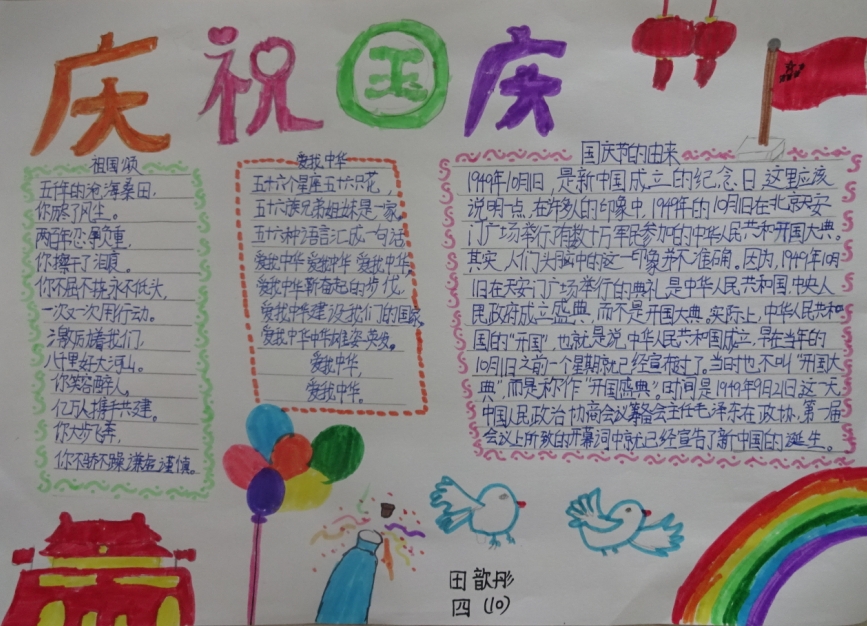 庆祝国庆
祖国颂
五千年的沧海桑田,
你历尽了风尘。
两百年忍辱负重,
你擦干了泪痕。
你不屈不挠,永不低头,
一次又一次用行动。
激励着我们,
八千里好大河山。
你笑容醉人。
亿万人携手共建。
你大步飞奔,
你不骄不躁谦虚谨慎。
爱我中华
五十六个星座五十六只花,
五十六族兄弟姐妹是一家,
五十六种语言汇成一句话
爱我中华 爱我中华 爱我中华。
爱我中华 奋起的步伐,
爱我中华建设我们的国家
爱我中华中华雄姿英发。
爱我中华,
爱我中华。
国庆节的由来
1949年10月1日,是新中国成立的纪念日。这里应该
说明一点,在许多人的印象中,1949年的10月1日在北京天安
门广场举行了有数十万军民参加的中华人民共和开国大典。
其实,人们头脑中的这一印象并不准确。因为,1949年10月
1日在天安门广场举行的典礼是中华人民共和国中央人
民政府成立盛典,而不是开国大典。实际上,中华人民共和
国的"开国",也就是说中华人民共和国成立,早在当年的
10月1日之前一个星期就已经宣布过了。当时也不叫"开国大
典",而是称作"开国盛典"。时间是1949年9月21日这一天。
中国人民政治协商会议筹备会主任毛泽东在政协,第一届
会议上所致的开幕词中就已经宣告了新中国的诞生。
田歆彤
四(10)